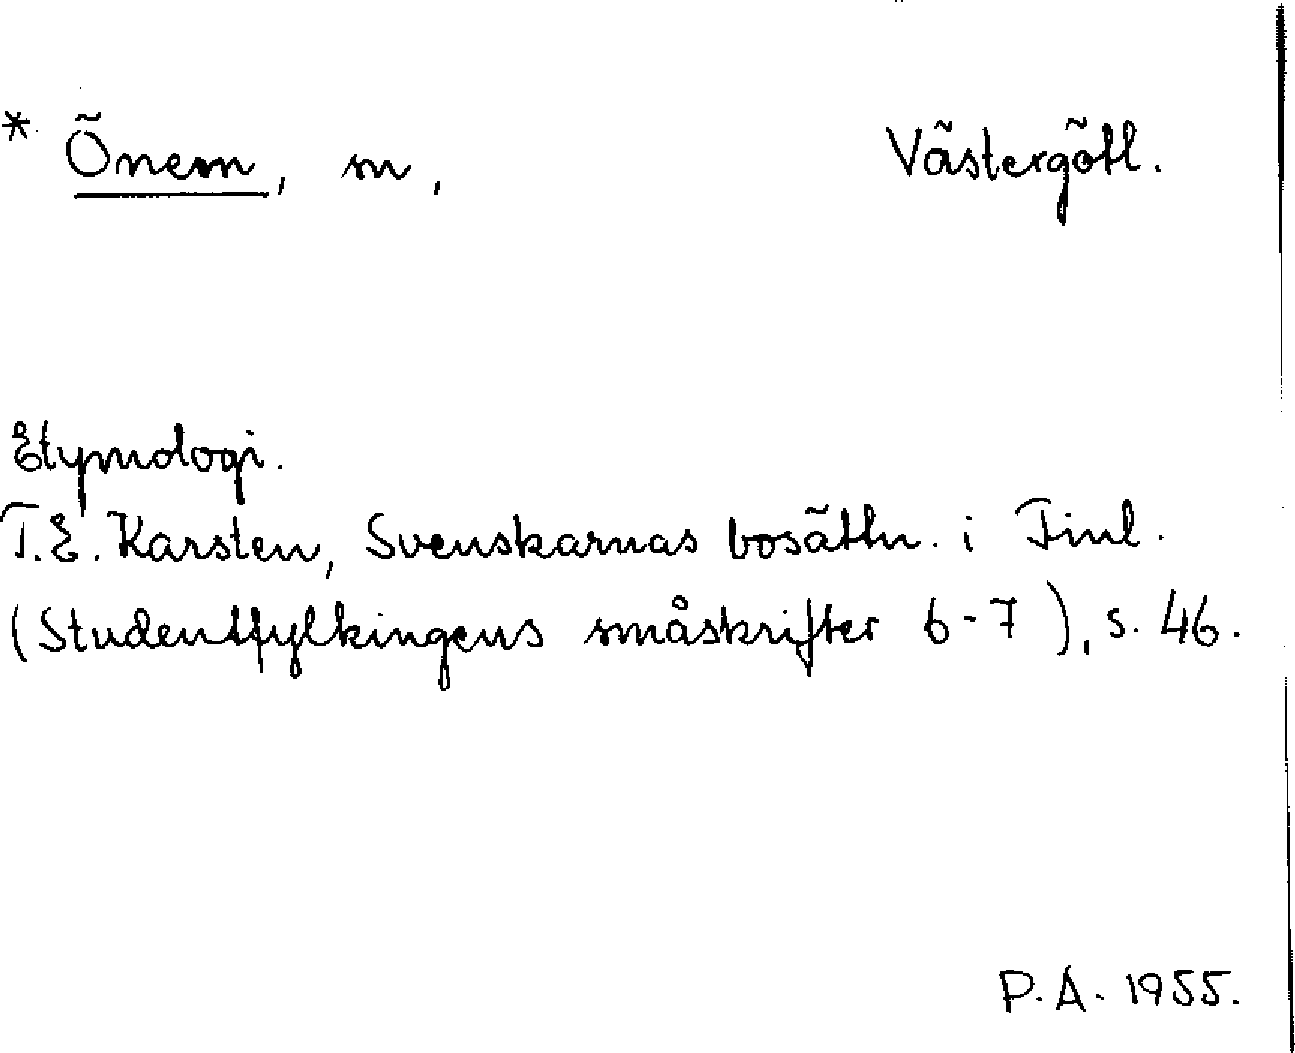 * Önem, m, Västergötl.
Etymologi.
T.E. Karsten, Svenskarnas bosättn. i Finl.
(Studentfylkingens småskrifter 6-7), s. 46.
P.A. 1955.